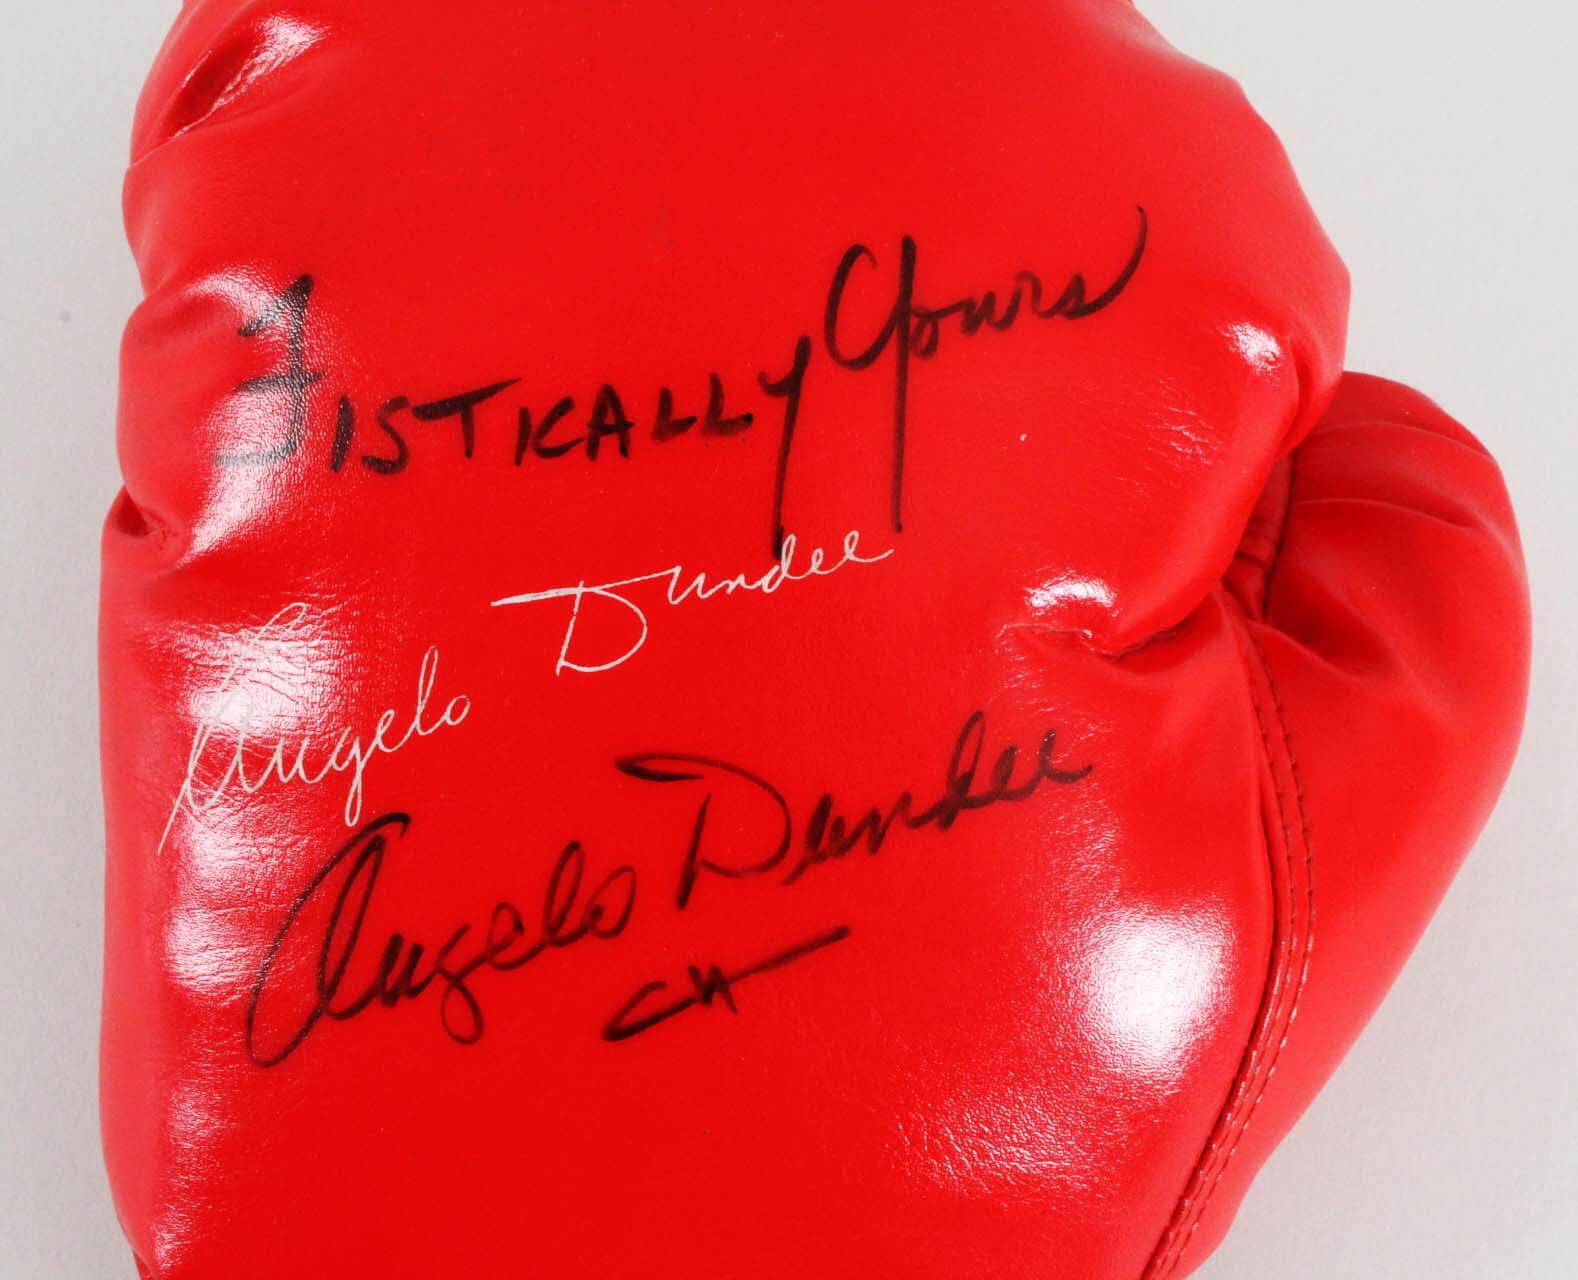 FISTICALLY Yours
Angelo Dundee
Angelo Dundee